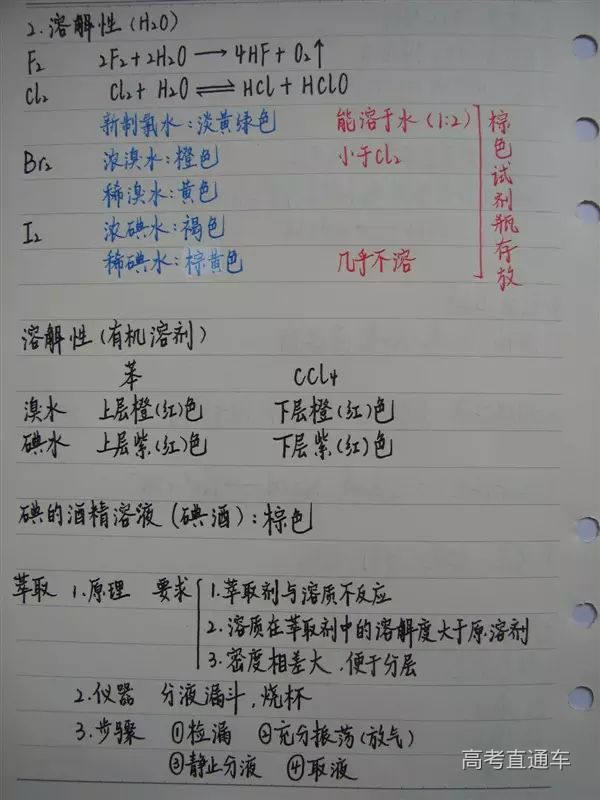 2.溶解性(H₂O)
F₂ 2F₂+2H₂O⟶4HF+O₂↑
Cl₂ Cl₂+H₂O⇌HCl+HClO
新制氯水:淡黄绿色 能溶于水(1:2)
Br₂ 浓溴水:橙色 小于Cl₂
稀溴水:黄色
I₂ 浓碘水:褐色
稀碘水:棕黄色 几乎不溶
棕色试剂瓶存放
溶解性(有机溶剂)
苯 CCl₄
溴水 上层橙(红)色 下层橙(红)色
碘水 上层紫(红)色 下层紫(红)色
碘的酒精溶液(碘酒):棕色
萃取 1.原理 要求 1.萃取剂与溶质不反应
2.溶质在萃取剂中的溶解度大于原溶剂
3.密度相差大,便于分层
2.仪器 分液漏斗,烧杯
3.步骤 ①检漏 ②充分振荡(放气)
③静止分液 ④取液
高考直通车